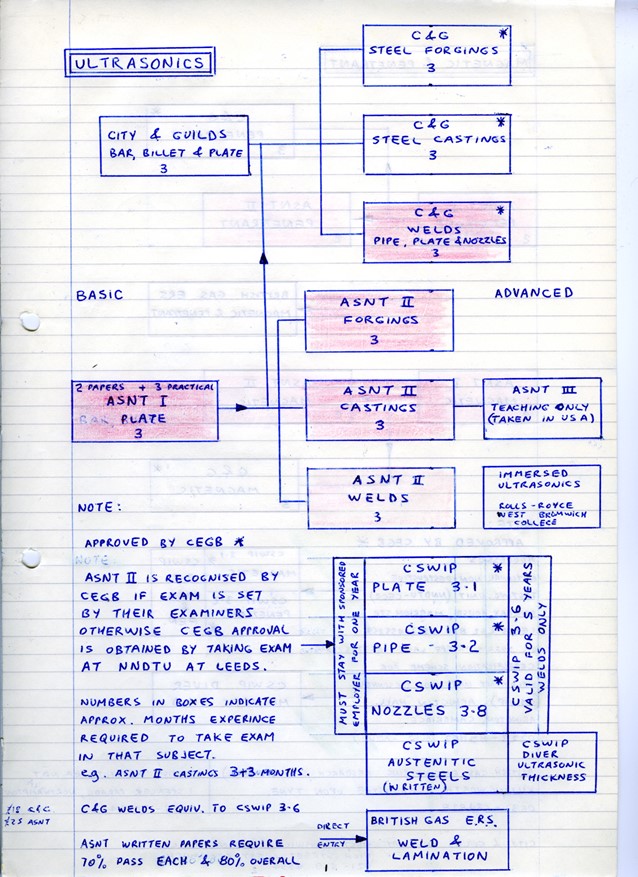 ULTRASONICS
C&G *
STEEL FORGINGS
3
CITY & GUILDS
BAR, BILLET & PLATE
3
C&G *
STEEL CASTINGS
3
C&G *
WELDS
PIPE, PLATE & NOZZLES
3
BASIC
ADVANCED
ASNT II
FORGINGS
3
2 PAPERS + 3 PRACTICAL
ASNT I
BAR, PLATE
3
ASNT II
CASTINGS
3
ASNT III
TEACHING ONLY
(TAKEN IN USA)
ASNT II
WELDS
3
IMMERSED
ULTRASONICS
ROLLS-ROYCE
WEST BROMWICH
COLLEGE
NOTE:
APPROVED BY CEGB *
ASNT II IS RECOGNISED BY
CEGB IF EXAM IS SET
BY THEIR EXAMINERS
OTHERWISE CEGB APPROVAL
IS OBTAINED BY TAKING EXAM
AT NNDTU AT LEEDS.
MUST STAY WITH SPONSORED
EMPLOYER FOR ONE YEAR
CSWIP *
PLATE 3.1
CSWIP *
PIPE - 3.2
CSWIP *
NOZZLES 3.8
CSWIP 3.6
VALID FOR 5 YEARS
WELDS ONLY
NUMBERS IN BOXES INDICATE
APPROX. MONTHS EXPERINCE
REQUIRED TO TAKE EXAM
IN THAT SUBJECT.
e.g. ASNT II CASTINGS 3+3 MONTHS.
CSWIP
AUSTENITIC
STEELS
(WRITTEN)
CSWIP
DIVER
ULTRASONIC
THICKNESS
£18 C&G
£25 ASNT
C&G WELDS EQUIV. TO CSWIP 3.6
ASNT WRITTEN PAPERS REQUIRE
70% PASS EACH & 80% OVERALL
DIRECT
ENTRY
BRITISH GAS E.R.S.
WELD &
LAMINATION